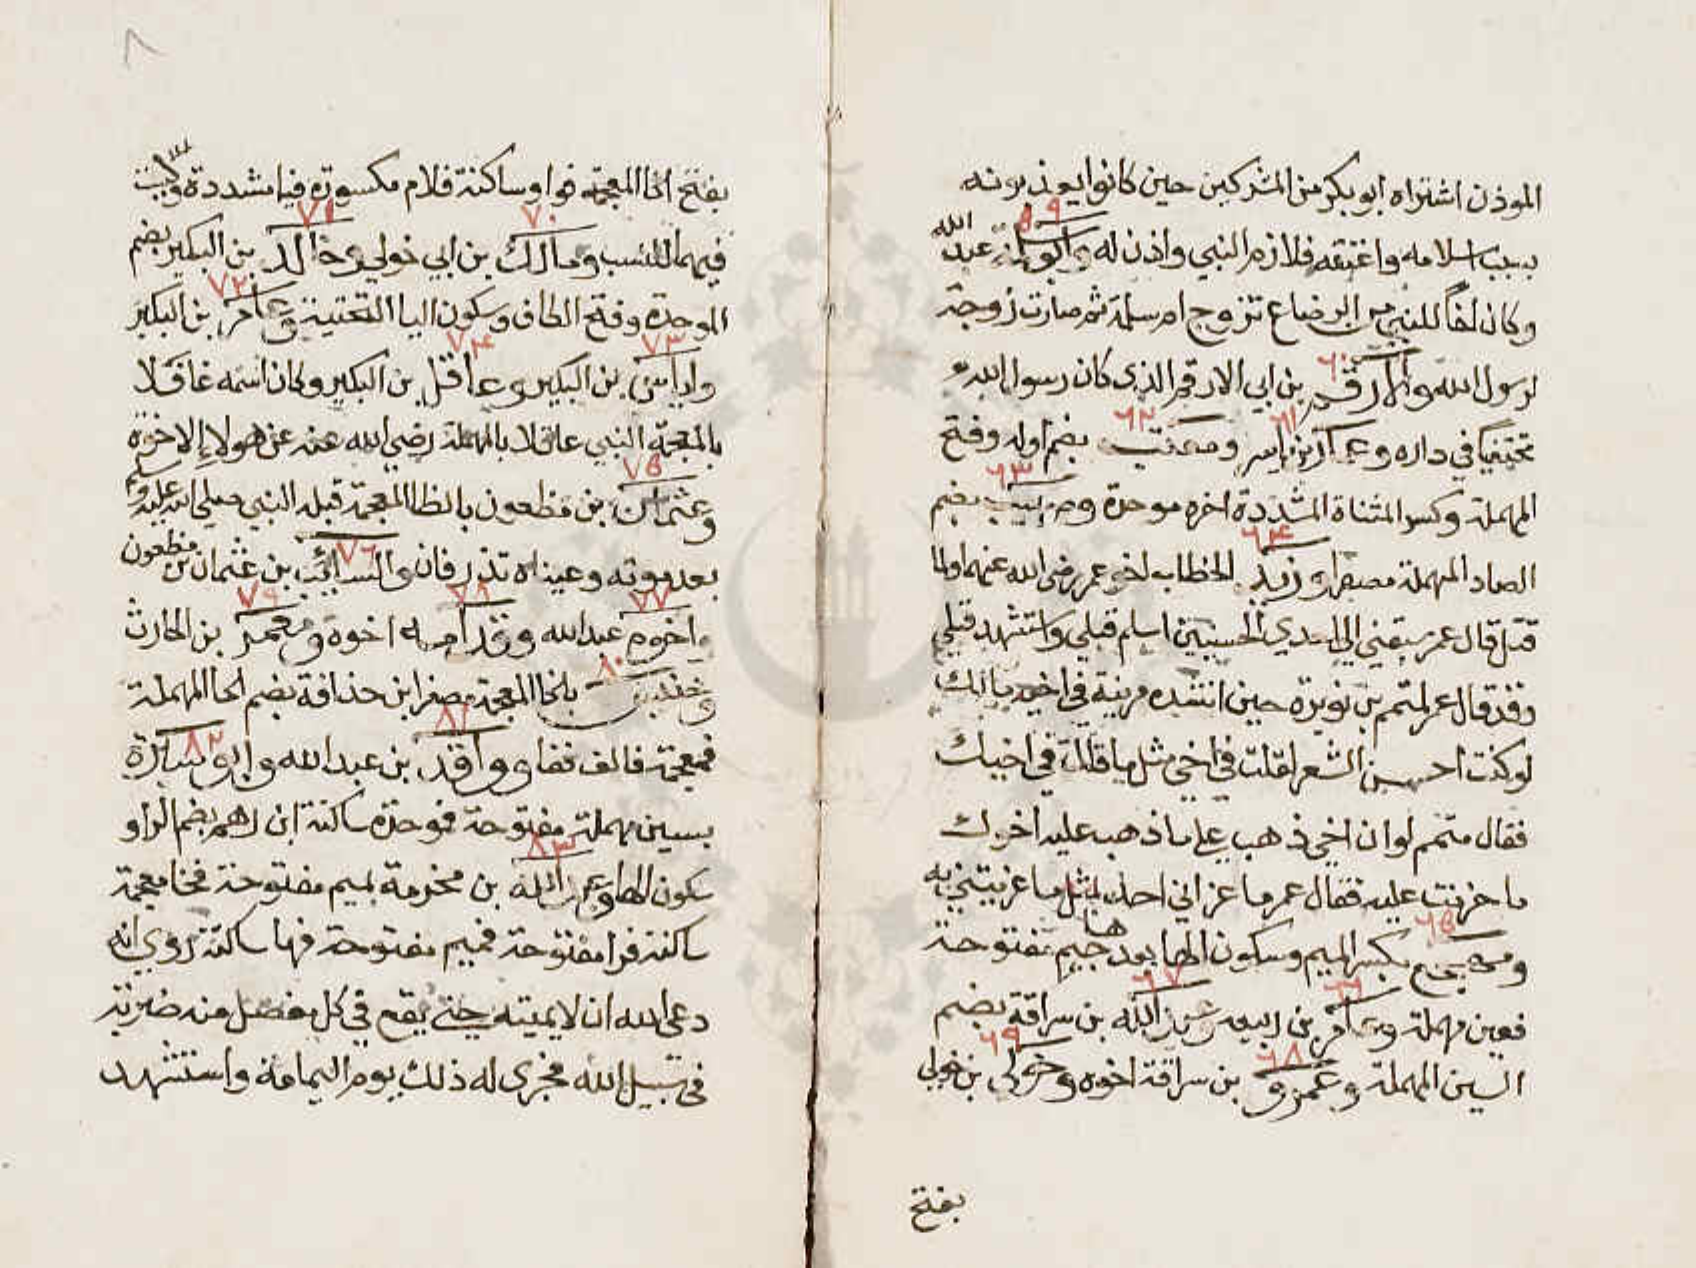 الموذن اشتراه ابو بكر من المشركين حين كانوا يعذبونه
بسبب اسلامه واعتقه فلازم النبي واذن له وابو سلمة عبد الله
٥٩
وكان اخاً للنبي من الرضاع تزوج ام سلمة ثم صارت زوجة
لرسول الله والارقم بن ابي الارقم الذي كان رسول الله
٦٠
مختفيا في داره وعمار بن ياسر ومعتب بضم اوله وفتح
٦١ ٦٢
المهملة وكسر المثناة المشددة اخره موحدة وصهيب بضم
٦٣
الصاد المهملة مصغرا وزيد الخطاب اخو عمر رضي الله عنهما ولما
٦٤
قتل قال عمر سبقني الي احدي الحسنيين اسلم قبلي واستشهد قبلي
وقد قال عمر لمتمم بن نويرة حين انشده مرثية في اخيه مالك
لو كنت احسن الشعر لقلت في اخي مثل ما قلت في اخيك
فقال متمم لو ان اخي ذهب علي ما ذهب عليه اخوك
ما حزنت عليه فقال عمر ما عزاني احد بمثل ما عزيتني به
ومهجع بكسر الميم وسكون الها بعدها جيم مفتوحة
٦٥
فعين مهملة وعامر بن ربيعه وعبد الله بن سراقة بضم
٦٦ ٦٧
السين المهملة وعمرو بن سراقة اخوه وخولي بن خولي
٦٨ ٦٩
بفتح
٨
بفتح الخا المعجمة فواو ساكنة فلام مكسورة فيا مشددة وليست
فيهما للنسب ومالك بن ابي خولي وخالد بن البكير بضم
٧٠ ٧١
الموحدة وفتح الكاف وسكون اليا التحتية وعامر بن البكير
٧٢
واياس بن البكير وعاقل بن البكير وكان اسمه غافلا
٧٣ ٧٤
بالمعجمة النبي عاقلا بالمهملة رضي الله عنه عن هولا الاخوة
وعثمان بن مظعون بالظا المعجمة قبله النبي صلي الله عليه وسلم
٧٥
بعد موته وعيناه تذرفان والسائب بن عثمان بن مظعون
٧٦
واخوه عبد الله وقدامه اخوة ومعمر بن الحارث
٧٧ ٧٨ ٧٩
وخنيس بالخا المعجمة مصغرا بن حذافة بضم الحا المهملة
٨٠
فمعجمة فالف ففا وواقد بن عبد الله وابو سبرة
٨١ ٨٢
بسين مهملة مفتوحة فوحدة ساكنة ابن رهم بضم الرا و
سكون الها وعبد الله بن مخرمة بميم مفتوحة فخا معجمة
٨٣
ساكنة فرا مفتوحة فميم مفتوحة فها ساكنة روي انه
دعي الله ان لا يميته حتي يقع في كل مفصل منه ضربة
في سبيل الله فجري له ذلك يوم اليمامة واستشهد